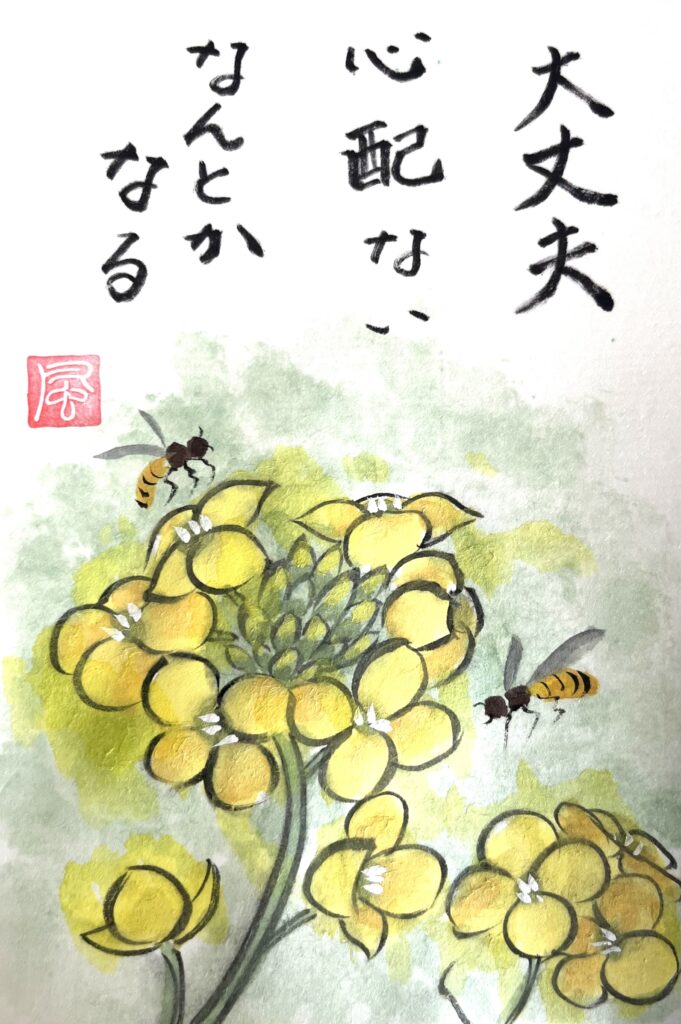 大丈夫
心配ない
なんとか
なる
風